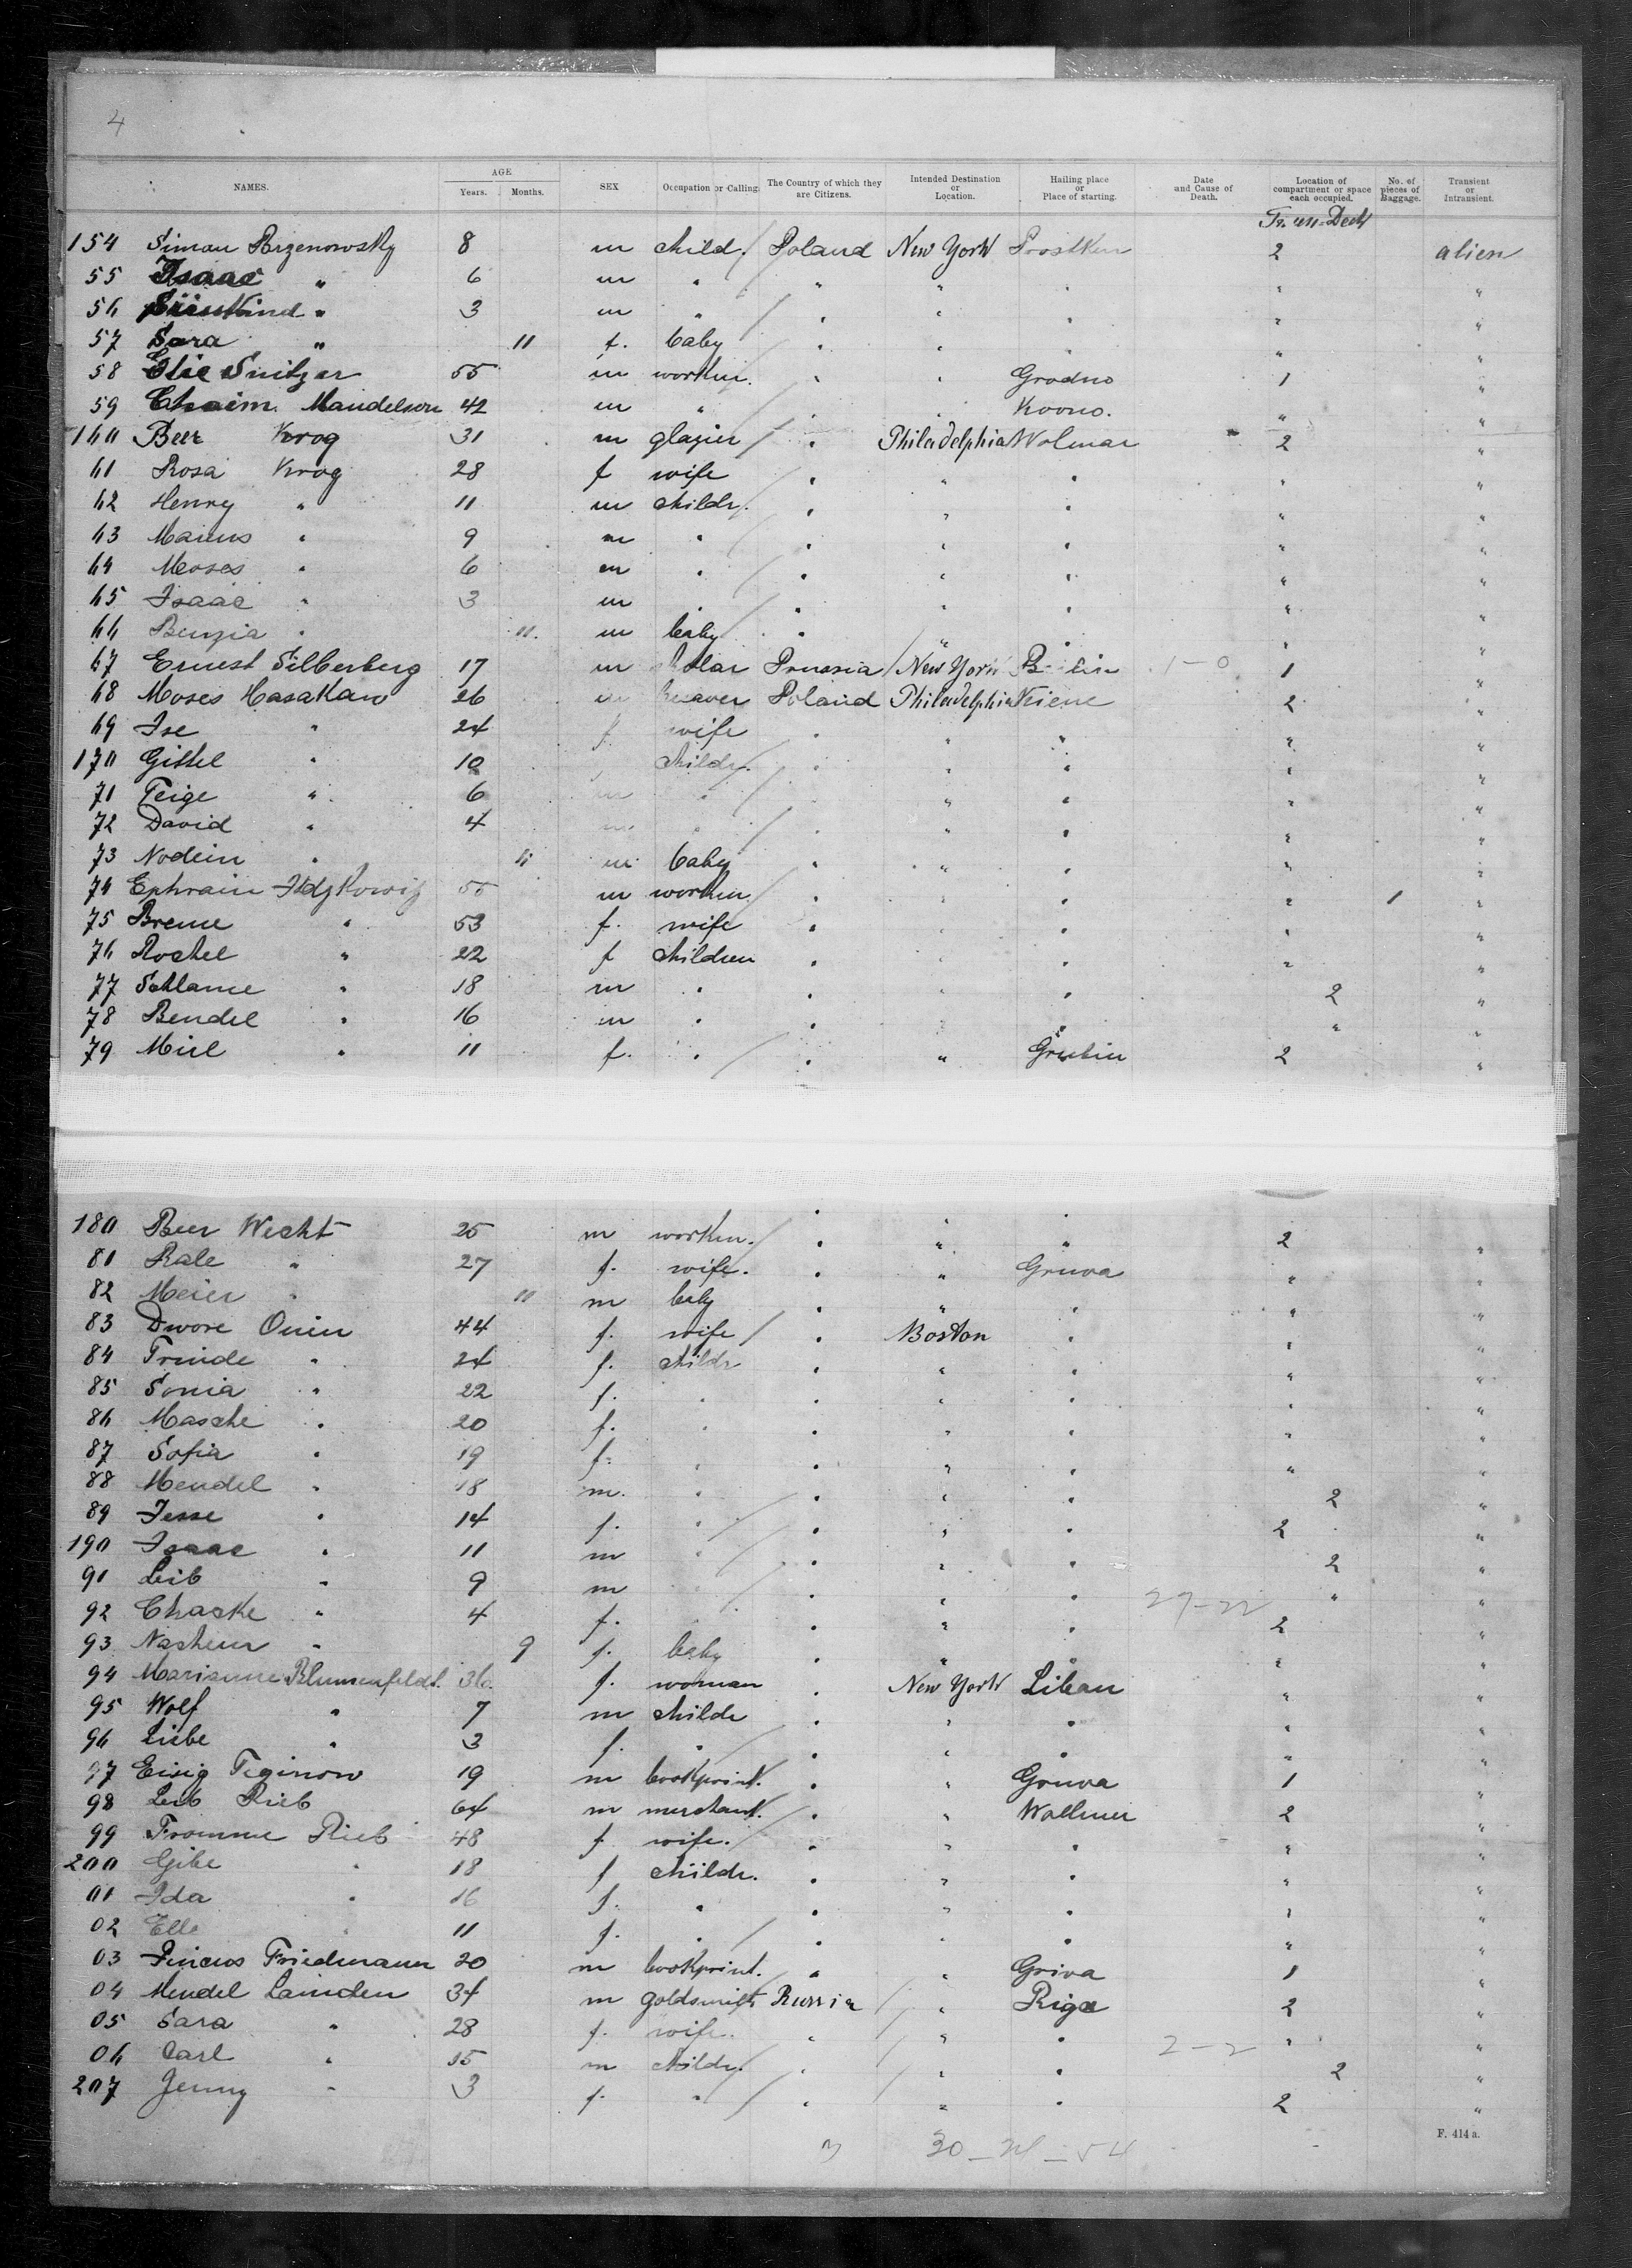 4
NAMES. AGE Years. Months. SEX Occupation or Calling. The Country of which they are Citizens. Intended Destination or Location. Hailing place or Place of starting. Date and Cause of Death. Location of compartment or space each occupied. No. of pieces of Baggage. Transient or Intransient.
154 Simon 8 m child. Poland New York Prostken 2 alien
55 Isaac " 6 m " " " " " "
56 " 3 m " " " " " "
57 Sara " 11 f. baby " " " " "
58 Elie Snitzer 55 m workm. " " Grodno 1 "
59 Chaim Mandelson 42 m " " " Kovno. " "
160 Beer Krog 31 m glazier " Philadelphia Wolmar 2 "
61 Rosa Krog 28 f wife " " " " "
62 Henry " 11 m childr. " " " " "
63 Marius " 9 m " " " " " "
64 Moses " 6 m " " " " " "
65 Isaac " 3 m " " " " " "
66 Benzia " 11. m baby " " " " "
67 Ernest Silberberg 17 m Prussia New York 1-0 1 "
68 Moses Hasakaw 26 m Poland Philadelphia 2 "
69 Ise " 24 f. wife " " " " "
170 Gittel " 10 childr. " " " " "
71 Feige " 6 m " " " " "
72 David " 4 m " " " " " "
73 Nodein " 11 m baby " " " " "
74 Ephraim 55 m workm. " " " " 1 "
75 Breme " 53 f. wife " " " " "
76 Rochel " 22 f children " " " " "
77 Schlame " 18 m " " " " 2 "
78 Bendel " 16 m " " " " " "
79 Mirl " 11 f. " " " Grubin 2 "
180 Beer Wecht 25 m workm. " " " 2 "
81 Rale " 27 f. wife. " " Gruva " "
82 Meier " 11 m baby " " " " "
83 Dwore Onin 44 f. wife " Boston " " "
84 Trinde " 24 f. childr " " " " "
85 Sonia " 22 f. " " " " " "
86 Masche " 20 f. " " " " " "
87 Sofia " 19 f. " " " " " "
88 Mendel " 18 m. " " " " 2 "
89 Jesse " 14 f. " " " " 2 "
190 Isaac " 11 m " " " " 2 "
91 Leib " 9 m " " " " "
92 Chaske " 4 f. " " " 27-22 2 "
93 Nachem " 9 f. baby " " " " "
94 Marianne Blumenfeldt. 36. f. woman " New York Libau " "
95 Wolf " 7 m childr " " " " "
96 Liebe " 3 f. " " " " " "
97 Eisig Feginow 19 m bookprint. " " Gruva 1 "
98 Leib Rieb 64 m merchant. " " Wollmer 2 "
99 Fromme Rieb 48 f wife. " " " " "
200 Gibe " 18 f childr. " " " " "
01 Ida " 16 f. " " " " " "
02 Ella " 11 f. " " " " " "
03 Pincus Friedmann 20 m bookprint. " " Griva 1 "
04 Mendel Lainden 34 m goldsmith Russia " Riga 2 "
05 Sara " 28 f. wife. " " " 2-2 " "
06 Carl " 15 m childr. " " " 2 "
207 Jenny " 3 f. " " " " 2 "
F. 414 a.